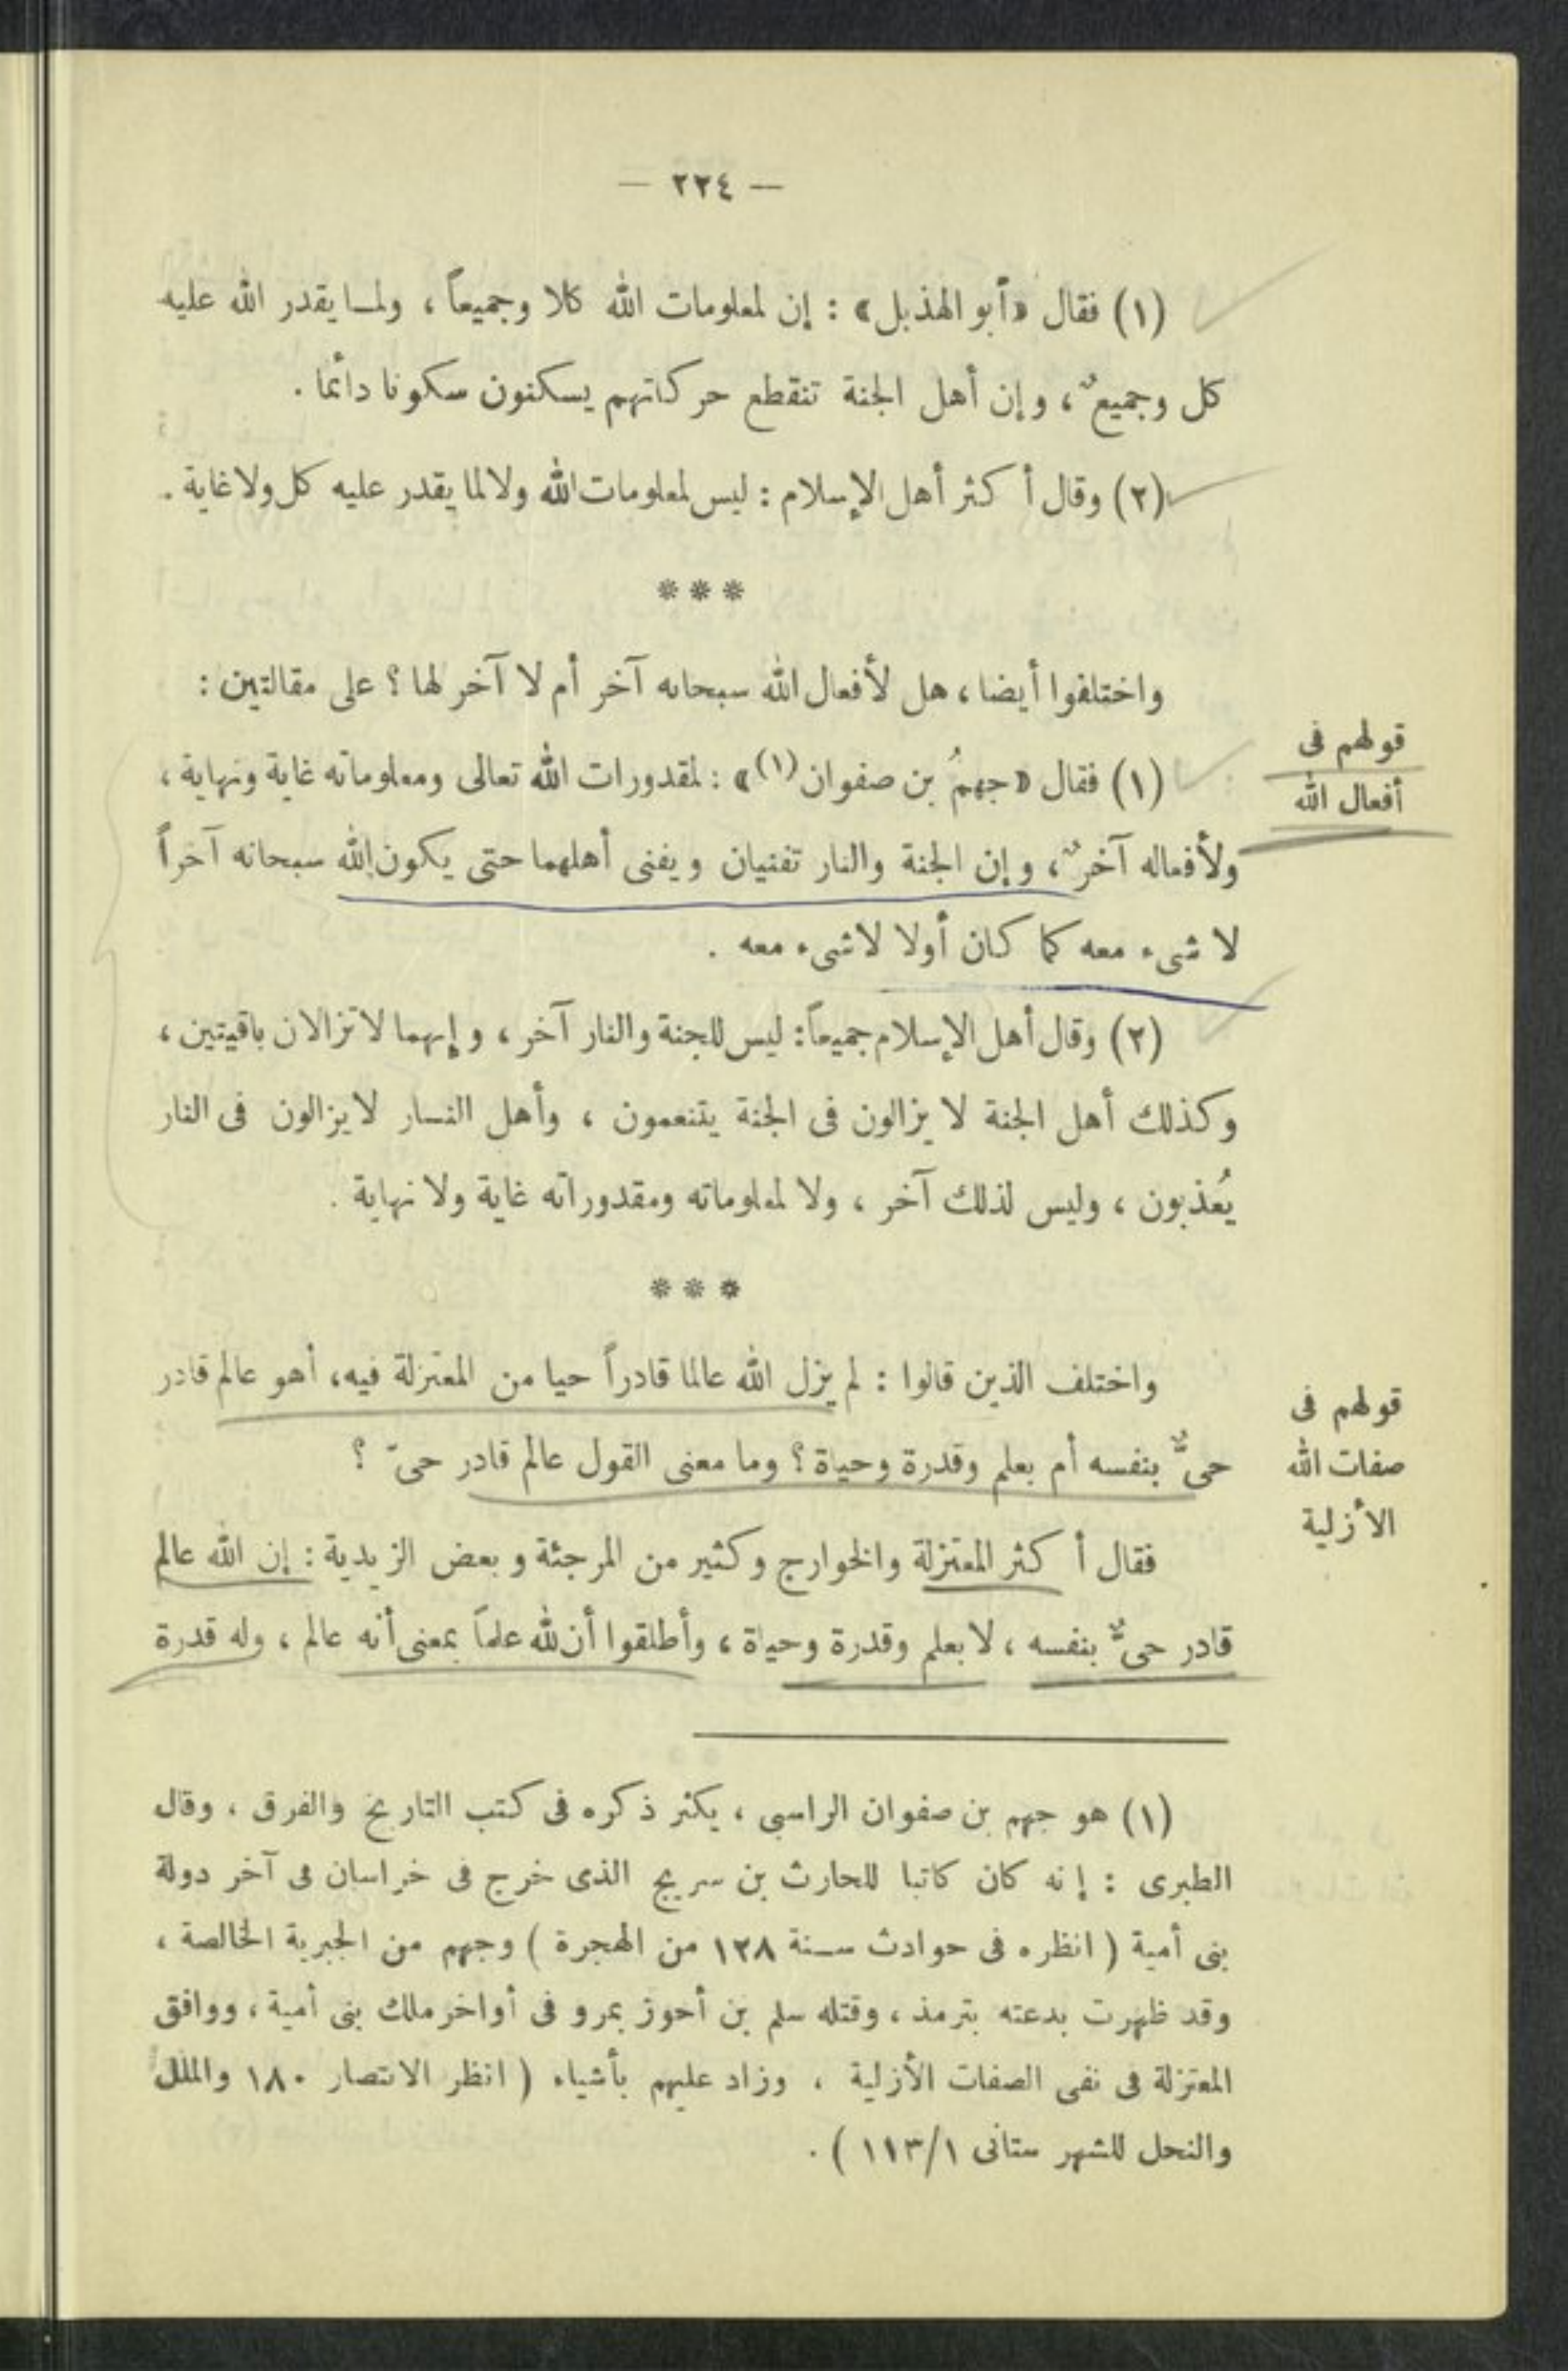 — ٢٢٤ —
(١) فقال «أبو الهذيل» : إن لمعلومات الله كلا وجميعاً ، ولما يقدر الله عليه
كل وجميعٌ ، وإن أهل الجنة تنقطع حركاتهم يسكنون سكونا دائما .
(٢) وقال أكثر أهل الإسلام : ليس لمعلومات الله ولا لما يقدر عليه كل ولا غاية .
***
واختلفوا أيضا ، هل لأفعال الله سبحانه آخر أم لا آخر لها ؟ على مقالتين :
قولهم فى
أفعال الله
(١) فقال «جهمُ بن صفوان (١)» : لمقدورات الله تعالى ومعلوماته غاية ونهاية ،
ولأفعاله آخرٌ ، وإن الجنة والنار تفنيان ويفنى أهلهما حتى يكون الله سبحانه آخراً
لا شىء معه كما كان أولا لا شىء معه .
(٢) وقال أهل الإسلام جميعاً : ليس للجنة والنار آخر ، وإنهما لا تزالان باقيتين ،
وكذلك أهل الجنة لا يزالون فى الجنة يتنعمون ، وأهل النار لا يزالون فى النار
يُعذبون ، وليس لذلك آخر ، ولا لمعلوماته ومقدوراته غاية ولا نهاية .
***
قولهم فى
صفات الله
الأزلية
واختلف الذين قالوا : لم يزل الله عالما قادراً حيا من المعتزلة فيه ، أهو عالم قادر
حىٌّ بنفسه أم بعلم وقدرة وحياة ؟ وما معنى القول عالم قادر حىّ ؟
فقال أكثر المعتزلة والخوارج وكثير من المرجئة وبعض الزيدية : إن الله عالم
قادر حىٌّ بنفسه ، لا بعلم وقدرة وحياة ، وأطلقوا أن لله علماً بمعنى أنه عالم ، وله قدرة
(١) هو جهم بن صفوان الراسبى ، يكثر ذكره فى كتب التاريخ والفرق ، وقال
الطبرى : إنه كان كاتبا للحارث بن سريج الذى خرج فى خراسان فى آخر دولة
بنى أمية ( انظره فى حوادث سنة ١٢٨ من الهجرة ) وجهم من الجبرية الخالصة ،
وقد ظهرت بدعته بترمذ ، وقتله سلم بن أحوز بمرو فى أواخر ملك بنى أمية ، ووافق
المعتزلة فى نفى الصفات الأزلية ، وزاد عليهم بأشياء ( انظر الانتصار ١٨٠ والملل
والنحل للشهر ستانى ١/١١٣ ) .